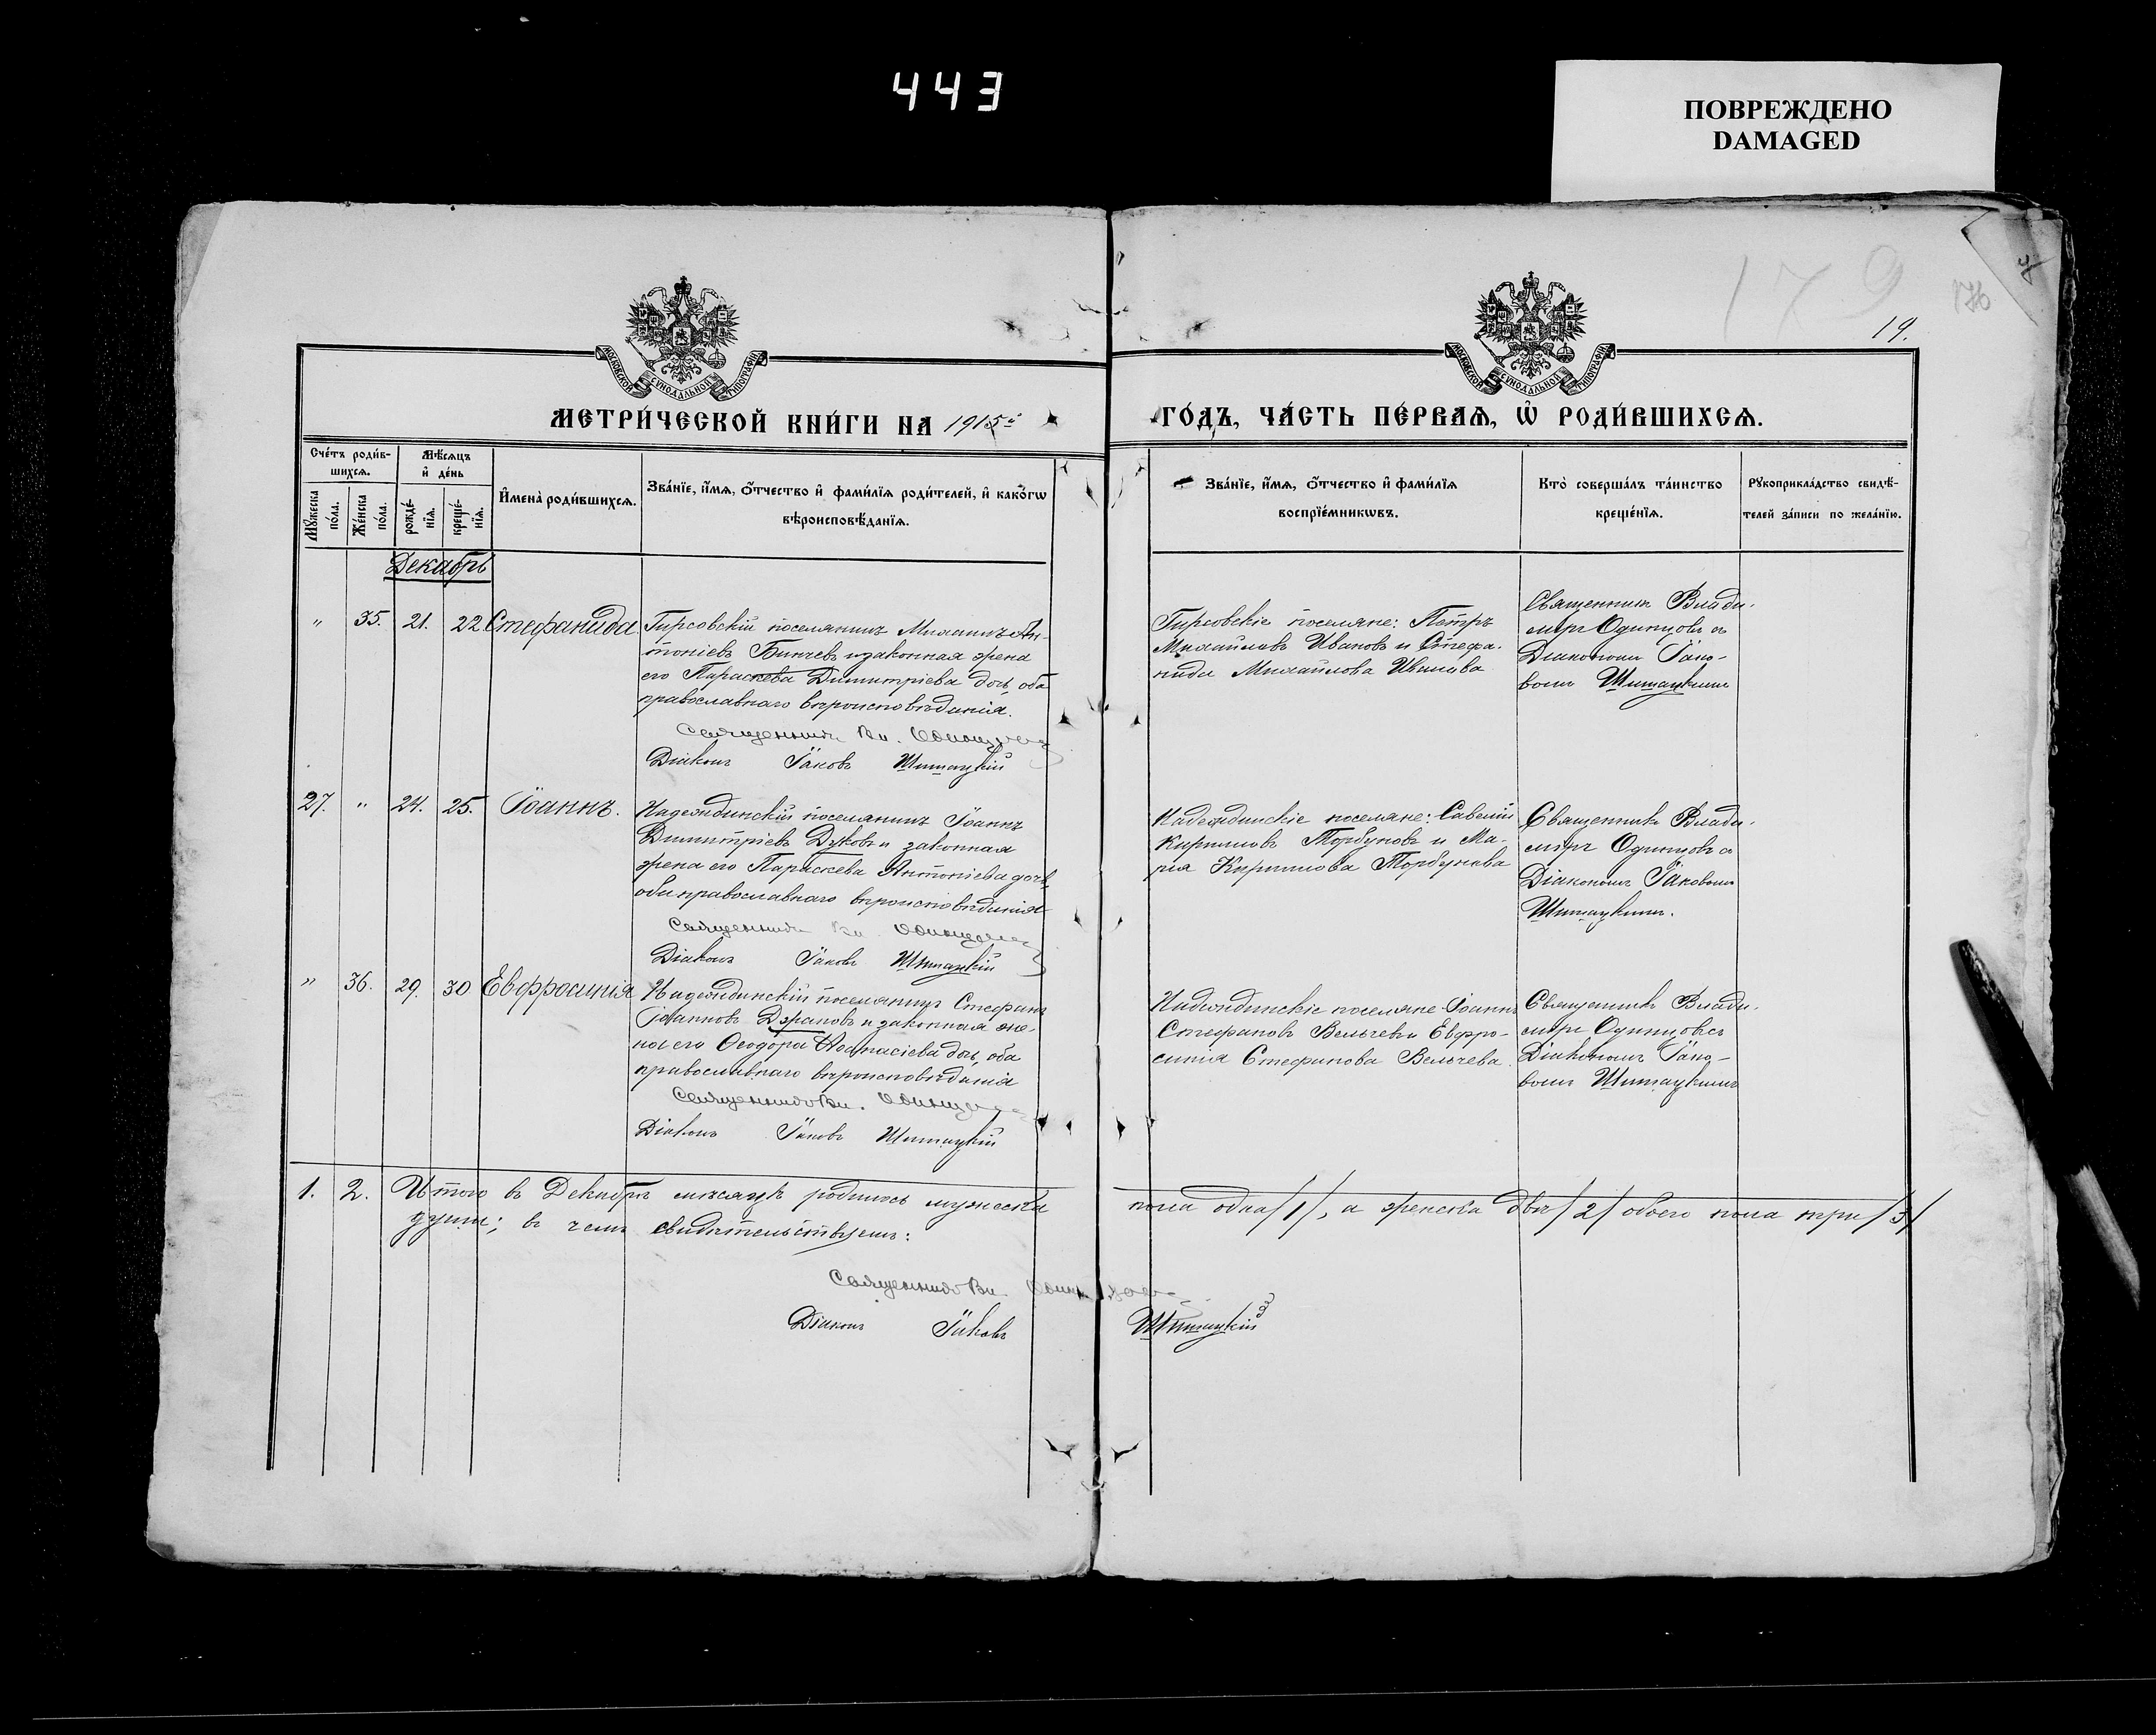 443
ПОВРЕЖДЕНО
DAMAGED
179
176
19.
МОСКОВСКОЙ СУНОДАЛЬНОЙ ТИПОГРАФІИ
МОСКОВСКОЙ СУНОДАЛЬНОЙ ТИПОГРАФІИ
МЕТРИ́ЧЕСКОЙ КНИ́ГИ НА 1915й
ГО́ДЪ, ЧА́СТЬ ПЕ́РВАѦ, Ѽ РОДИ́ВШИХСѦ.
Сче́тъ роди́в-
шихсѧ.
Мѣ́сѧцъ
и҆ де́нь
Мꙋ́жеска
по́ла.
Же́нска
по́ла.
рожде́-
нїѧ.
креще́-
нїѧ.
И҆мена̀ роди́вшихсѧ.
Зва́нїе, и҆́мѧ, ѻ҆́тчество и҆ фами́лїѧ роди́телей, и҆ како́гѡ
вѣроисповѣ́данїѧ.
Зва́нїе, и҆́мѧ, ѻ҆́тчество и҆ фами́лїѧ
воспрїе́мникѡвъ.
Кто̀ соверша́лъ та́инство
креще́нїѧ.
Рꙋкоприкла́дство свидѣ́-
телей за́писи по жела́нїю.
Декабрь
" 35. 21. 22 Стефанида
Гирсовскій поселянинъ Михаилъ Ан-
тоніевъ Бинчевъ и законная жена
его Параскева Димитріева дочь, оба
православнаго вѣроисповѣданія.
Священникъ Вл. Одинцовъ
Діаконъ Іаковъ Шитацкій
Гирсовскіе поселяне: Петръ
Михайловъ Ивановъ и Стефа-
нида Михайлова Иванова
Священникъ Влади-
миръ Одинцовъ съ
Діакономъ Іако-
вомъ Шитацкимъ
27. " 24. 25. Іоаннъ.
Надеждинскій поселянинъ Іоаннъ
Димитріевъ Дуковъ и законная
жена его Параскева Антоніева дочь,
оба православнаго вѣроисповѣданія
Священникъ Вл. Одинцовъ
Діаконъ Іаковъ Шитацкій
Надеждинскіе поселяне: Савелій
Кирилловъ Торбуновъ и Ма-
рія Кириллова Торбунова
Священникъ Влади-
миръ Одинцовъ съ
Діакономъ Іаковомъ
Шитацкимъ.
" 36. 29. 30 Евфросинія
Надеждинскій поселянинъ Стефанъ
Іоанновъ Дѣрановъ и законная же-
на его Ѳеодора Аѳанасіева дочь, оба
православнаго вѣроисповѣданія
Священникъ Вл. Одинцовъ
Діаконъ Іаковъ Шитацкій
Надеждинскіе поселяне Іоаннъ
Стефановъ Вельчевъ и Евфро-
синія Стефанова Вельчева.
Священникъ Влади-
миръ Одинцовъ съ
Діакономъ Іако-
вомъ Шитацкимъ
1. 2. Итого въ Декабрѣ мѣсяцѣ родилось мужеска пола одна /1/, а женска двѣ /2/ обоего пола три /3/
души; въ чемъ свидѣтельствуемъ:
Священникъ Вл. Одинцовъ
Діаконъ Іаковъ Шитацкій